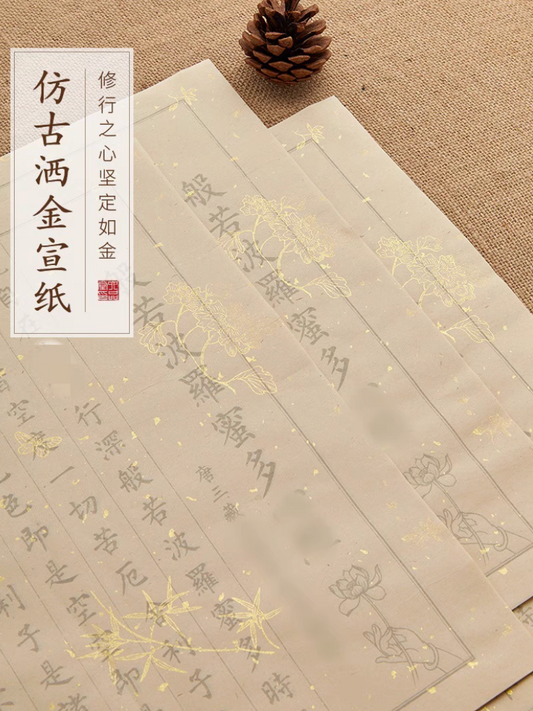 仿古洒金宣纸
修行之心坚定如金
般若波羅蜜多
般若波羅蜜多
唐三藏
行深般若波羅蜜多時
皆空度一切苦厄舍利子
色即是空空即
利子是諸